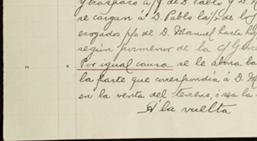 y traspaso a/f de D. Pablo y D. M
se cargan á D. Pablo la/s de los
erogados p/o de D. Manuel hasta
según pormenor de la c/
Por igual causa se le abona
la parte que correspondia á D. M
en la venta del terreno, ó sea la
Á la vuelta